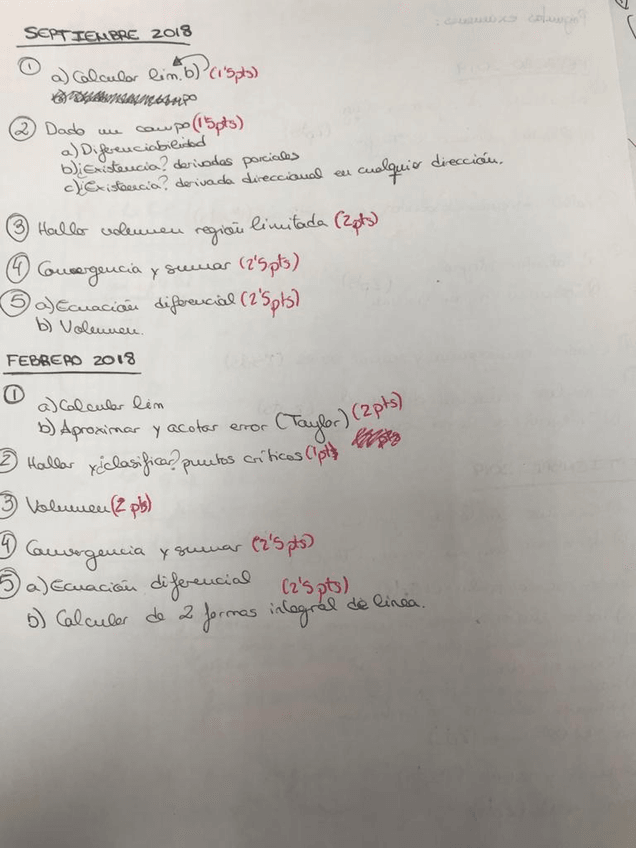 SEPTIEMBRE 2018
① a) Calcular lim. b) (1'5pts)
② Dado un campo (1'5pts)
a) Diferenciabilidad
b) ¿Existencia? derivadas parciales
c) ¿Existencia? derivada direccional en cualquier dirección.
③ Hallar volumen región limitada (2pts)
④ Convergencia y sumar (2'5pts)
⑤ a) Ecuación diferencial (2'5pts)
b) Volumen.
FEBRERO 2018
① a) Calcular lim
b) Aproximar y acotar error (Taylor) (2pts)
② Hallar y ¿clasificar? puntos críticos (1pt)
③ Volumen (2 pts)
④ Convergencia y sumar (2'5 pts)
⑤ a) Ecuación diferencial (2'5 pts)
b) Calcular de 2 formas integral de línea.